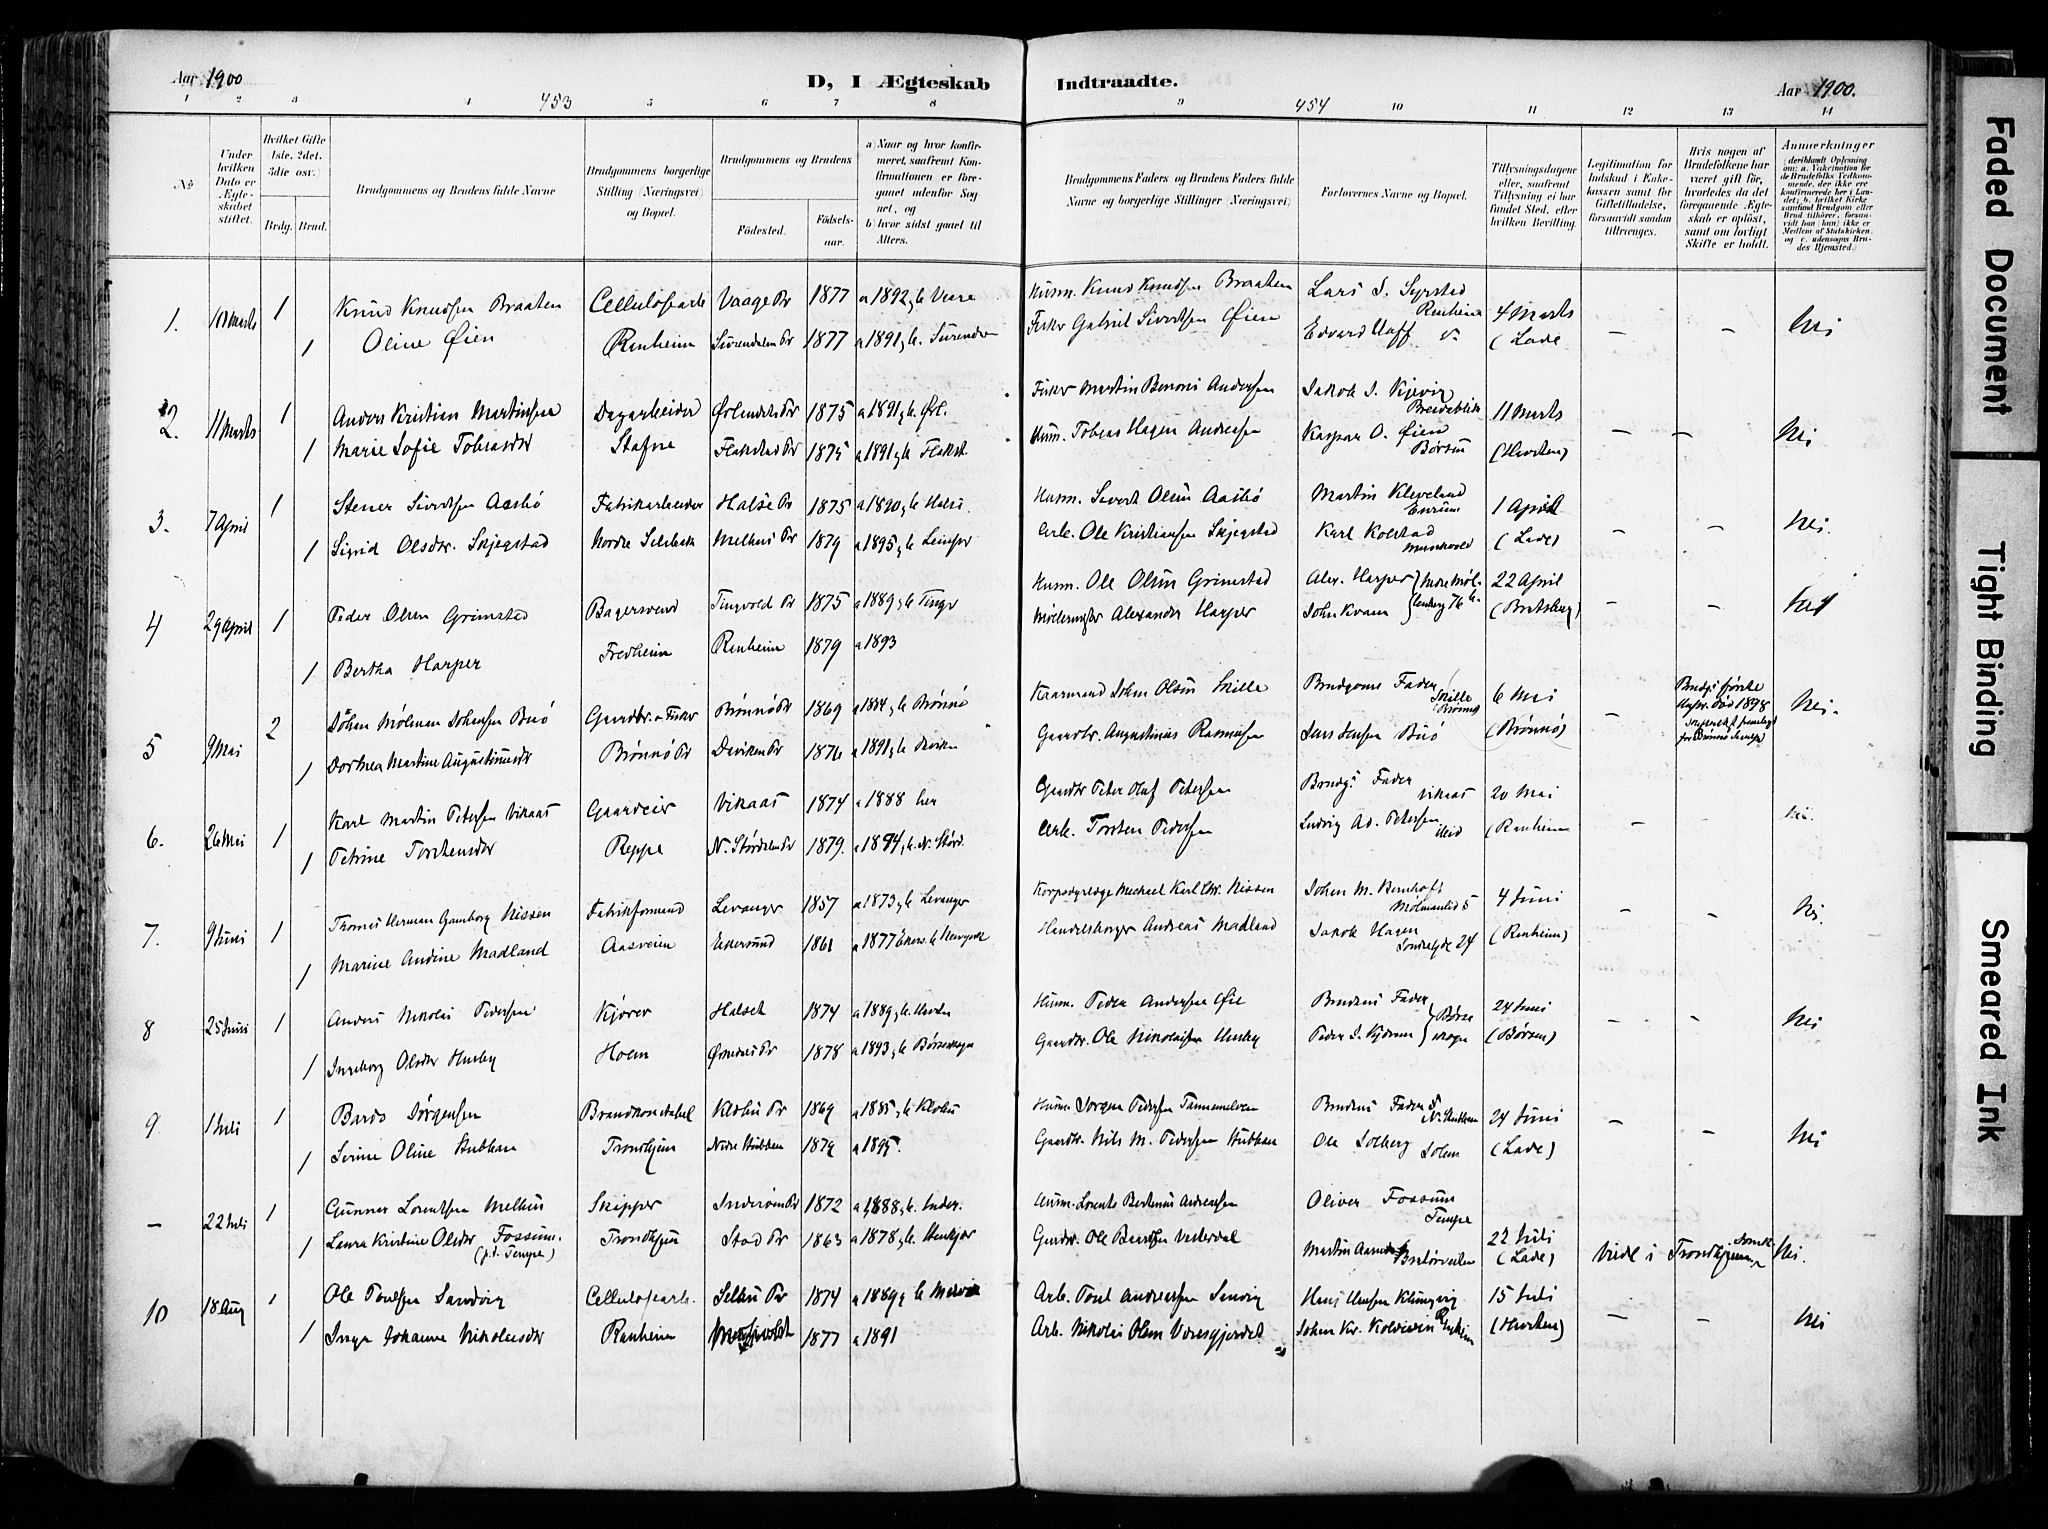 Aar 1900
D, I Ægteskab Indtraadte.
Aar 1900.
1 2 3 4 453 5 6 7 8 9 454 10 11 12 13 14
No
Under hvilken Dato er Ægteskabet stiftet.
Hvilket Gifte 1ste, 2det, 3die osv.
Brdg. Brud.
Brudgommens og Brudens fulde Navne
Brudgommens borgerlige Stilling (Næringsvei) og Bopæl.
Brudgommens og Brudens
Fødested.
Fødselsaar.
a) Naar og hvor konfirmeret, saafremt Konfirmationen er foregaaet udenfor Sognet, og
b) hvor sidst gaaet til Alters.
Brudgommens Faders og Brudens Faders fulde Navne og borgerlige Stillinger (Næringsvei)
Forlovernes Navne og Bopæl.
Tillysningsdagene eller, saafremt Tillysning ei har fundet Sted, efter hvilken Bevilling.
Legitimation for Indskud i Enkekassen samt for Giftetilladelse, forsaavidt saadan tiltrænges.
Hvis nogen af Brudefolkene har været gift før, hvorledes da det foregaaende Ægteskab er opløst, samt om lovligt Skifte er holdt.
Anmerkninger
(deriblandt Oplysning om: a. Vakcination for de Brudefolks Vedkommende, der ikke ere konfirmerede her i Landet; b. hvilket Kirkesamfund Brudgom eller Brud tilhører, forsaavidt han (hun) ikke er Medlem af Statskirken, og c. udensogns Brudes Hjemsted.)
1. 10 Marts 1 Knud Knudsen Braaten Cellulosearb Vaage Pr 1877 a 1892, b. Husm. Knud Knudsen Braaten Lars J. Syrstad Renheim 4 Marts
1 Oline Øien Renheim Surendalen Pr 1877 a 1891, b. Surendn Fisker Gabriel Sivertsen Øien Edvard Hoff (Lade — — Nei
2. 11 Marts 1 Anders Kristian Martinsen Dagarbeider Ørlandets Pr 1875 a 1891, b. Ørl. Fisker Martin Benoni Andersen Jakob J. Breidablik 11 Marts
1 Marie Sofie Tobiasdr Stafne Flakstad Pr 1875 a 1891, b. Flakst. Husm. Tobias Hagen Andreasen Kaspar O. Øien Børsen (Horten) — — Nei
3. 7 April 1 Stener Sivertsen Aasbø Fabrikarbeider Halse Pr 1875 a 1890, b. Halse. Husm. Sivert Olsen Aasbø Martin Kleveland 1 April
1 Sigrid Olsdr. Skjegstad Nordre Melhus Pr 1879 a 1895, b. Arb. Ole Kristiansen Skjegstad Karl Kolstad Munkvold (Lade) — — Nei.
4 29 April 1 Peder Olsen Grimstad Bagersvend Tingvold Pr 1875 a 1889, b. Tingv Husm. Ole Olsen Grimstad Alex. Harper 22 April
1 Bertha Harper Fredheim Renheim 1879 a 1893 Møllemester Alexander Harper John Kvam 76 b. (Bratsberg) — — Nei
5 9 Mai 2 Johan Mølman Johansen Buø Gaardbr. & Fisker Brønnø Pr 1869 a 1884, b. Brønnø Kaarmand Johan Olsen Skille Brudgoms Fader Skille Brønnø 6 Mai Nei.
1 Dorthea Martine Augustinusdr Brønnø Pr Daviken Pr 1876 a 1891, b. Gaardbr. Augustinus Rasmusen Lars Jensen Buø (Brønnø) — Brudg's første Hustr. død 1898
6. 26 Mai 1 Karl Martin Petersen Vikaas Gaardeier Vikaas 1874 a 1888 her Gaardbr Peter Olaf Petersen Brudg's Fader Vikaas 20 Mai
1 Petrine Torstensdr Reppe N. Stjørdalen Pr 1879. a 1894, b. N. Stjørd. Arb. Torsten Pedersen Ludvig Ad. Petersen (Renheim — — Nei.
7. 9 Juni 1 Thomas Herman Gamborg Nissen Fabrikformand Levanger 1857 a 1873, b. Levanger Korpsdyrlæge Michael Karl Chr. Nissen Johan M. Bernhoft 5 4 Juni
1 Marine Andine Madland Aasveien Ekersund 1861 a 1877 Handelsborger Andreas Madland Jakob Hagen 24 (Renheim) — — Nei.
8 25 Juni 1 Anders Nikolai Pedersen Kjører Halset 1874 a 1889, b. Husm. Peder Andersen Øie Brudens Fader 24 Juni
1 Ingeborg Olsdr Husby Holm 1878 a 1893, b. Børseskogn Gaardbr. Ole Nikolaisen Husby Peder J. (Børsen) — — Nei
9 1 Juli 1 Bardo Jørgensen Brandkonstabel Klæbu Pr 1869 a 1885, b. Klæbu Husm Jørgen Pedersen Tanemsøien Brudens Fader N. Stubban 24 Juni
1 Serine Oline Stubban Trondhjem Nedre Stubban 1879 a 1895. Gaardbr. Nils M. Pedersen Stubban Ole Solberg Solem (Lade) — — Nei
— 22 Juli 1 Gunnar Lorentsen Melhus Skipper Inderøen Pr 1872 a 1888, b. Inder. Husm. Lorents Bertinus Andreassen Oliver Fossum Tempe
1 Laura Kristine Olsdr Fossum. (p.t. Tempe) Trondhjem Stod Pr 1863 a 1878, b. Stenkjær Gaardbr. Ole Baardsen Vesterdal Martin 22 Juli (Lade) Viet i Trondhjems Domk. Nei.
10 18 Aug 1 Ole Poulsen Sandvig Cellulosearb. Selbu Pr 1874 a 1889, b. Arb. Poul Andreassen Sandvig Hans Hansen Klungvig 15 Juli
1 Inga Johanne Nikolaisdr Ranheim 1877 a 1891 Arb. Nikolai Olsen Væresgjerdet Johan Kr. Renheim (Horten) — — Nei
Faded Document
Tight Binding
Smeared Ink